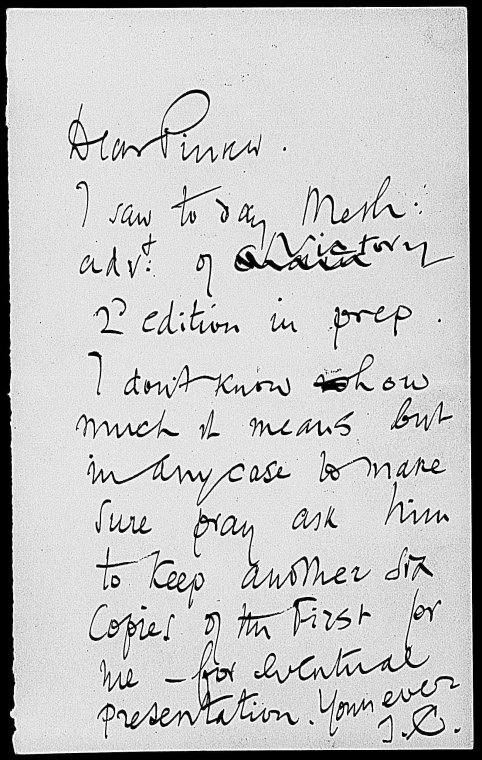 Dear Pinker.
I saw to day Meth:
advt: of Victory
2d edition in prep.
I don't know how
much it means but
in any case to make
sure pray ask him
to keep another six
Copies of the First for
me – for eventual
presentation. Yours ever
J.C.